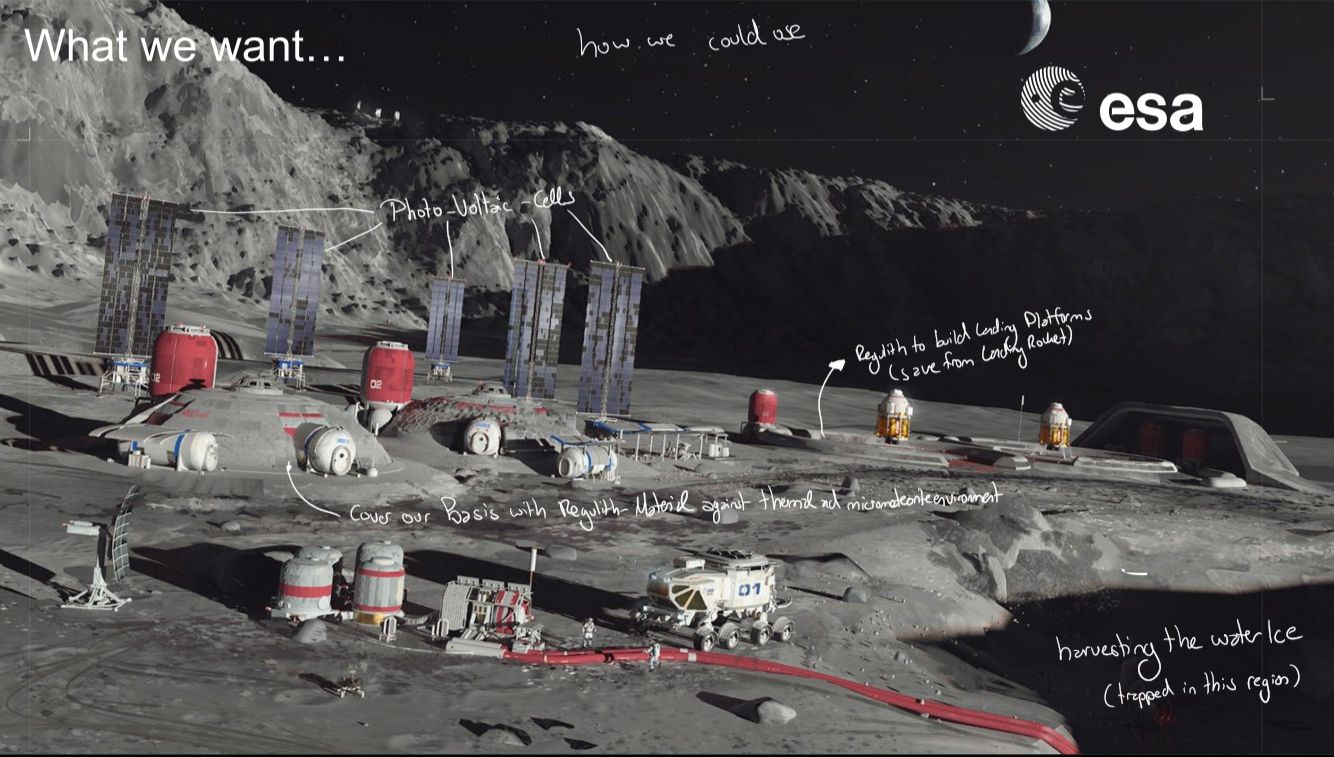 What we want...
how we could use
esa
Photo-Voltaic-Cells
Regulith to build Landing Platforms
(save from Landing Rocket)
02
Cover our Basis with Regulith-Material against thermal and micrometeorite environment
01
harvesting the water Ice
(trapped in this region)